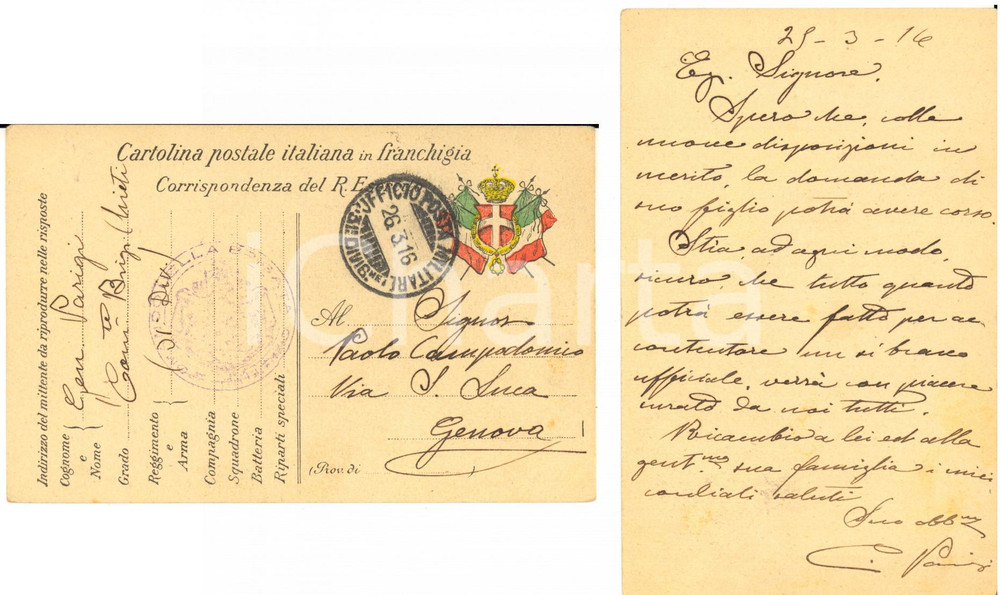 Cartolina postale italiana in franchigia
Corrispondenza del R. E
UFFICIO POSTA MILITARE
26.3.16
Indirizzo del mittente da riprodurre nelle risposte
Cognome e Nome { Gen Parigi
Grado Com.te Brig. Chieti
Reggimento e Arma { Div.
Compagnia
Squadrone
Batteria
Riparti speciali
Al Signor
Paolo Campodonico
Via S. Luca
Genova
(Prov. di
25-3-16
Eg. Signore,
Spero che, colle
nuove disposizioni in
merito, la domanda di
suo figlio potrà avere corso.
Stia, ad ogni modo,
sicuro, che tutto quanto
potrà essere fatto per ac
contentare un sì bravo
ufficiale, verrà con piacere
curato da noi tutti.
Ricambio a lei ed alla
gent.ma sua famiglia i miei
cordiali saluti
Suo obb.mo
C. Parigi
iCarta